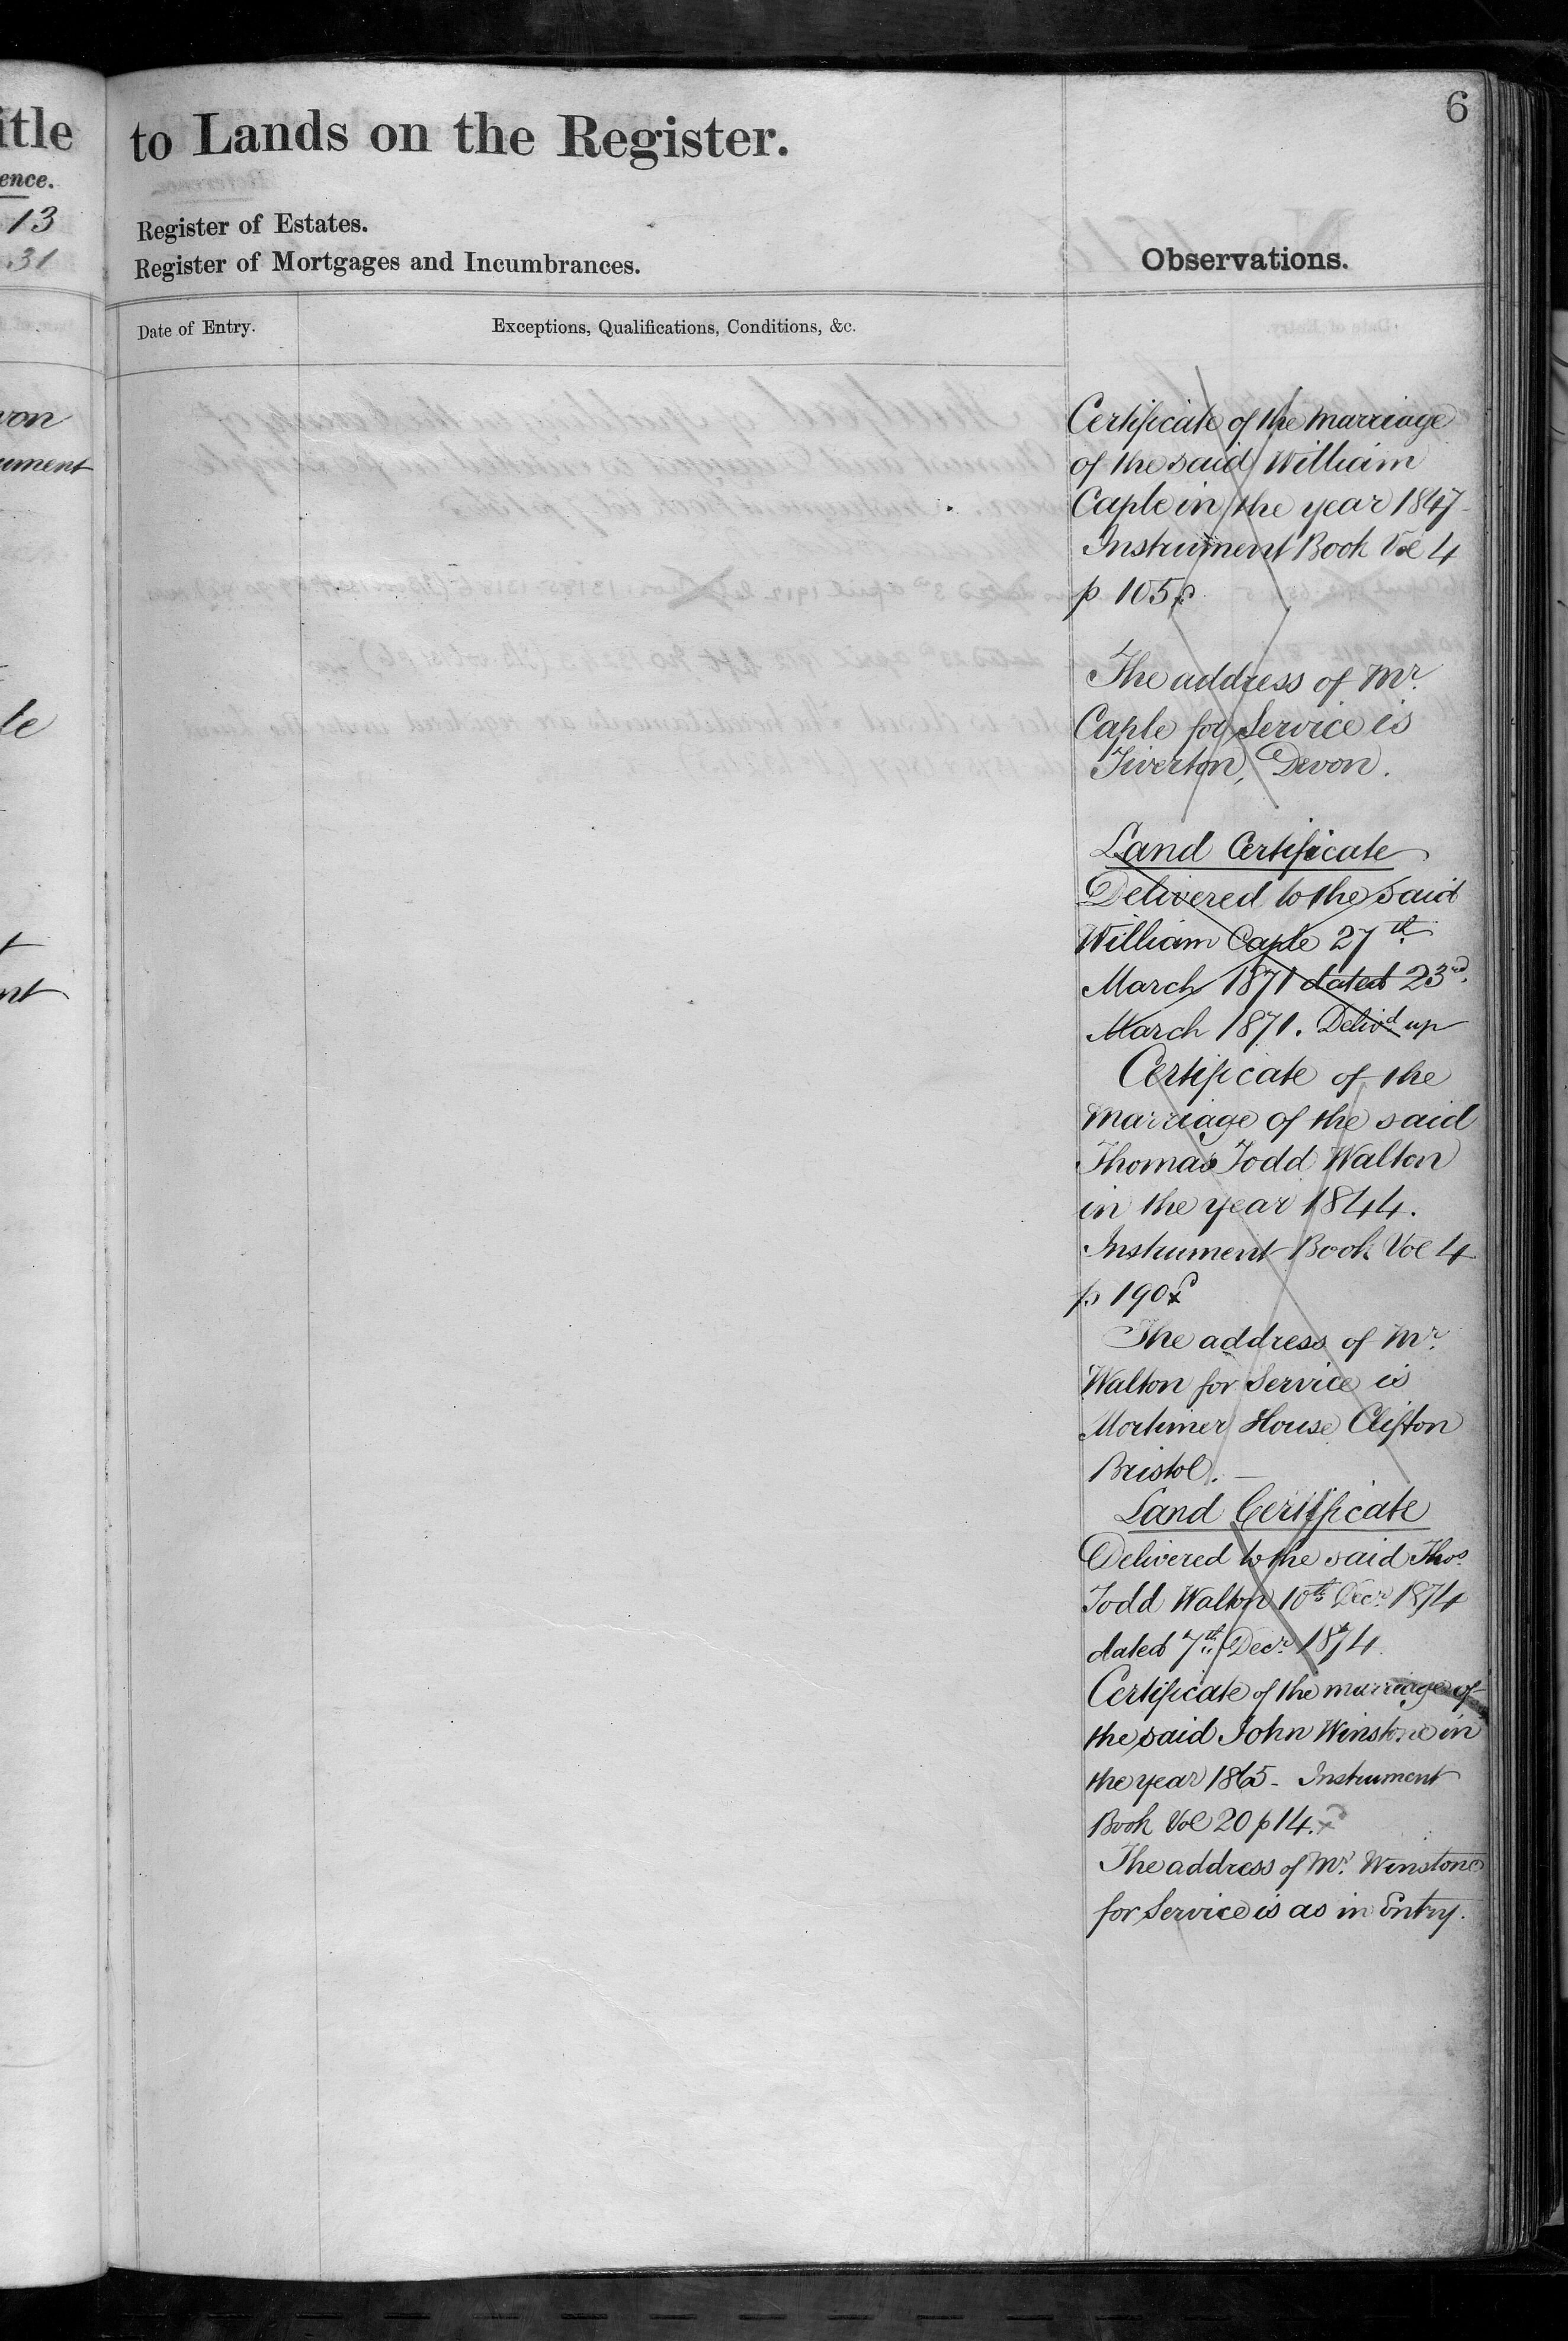 itle
ence.
13
31
von
ument
le
t
nt
6
to Lands on the Register.
Register of Estates.
Register of Mortgages and Incumbrances.
Observations.
Date of Entry.
Exceptions, Qualifications, Conditions, &c.
Certificate of the marriage
of the said William
Caple in the year 1847
Instrument Book Vol 4
p 105
The address of Mr.
Caple for Service is
Tiverton, Devon.
Land Certificate
Delivered to the said
William Caple 27th
March 1871 dated 23rd.
March 1871. Delivd up
Certificate of the
marriage of the said
Thomas Todd Walton
in the year 1844.
Instrument Book Vol 4
p 190
The address of Mr.
Walton for Service is
Mortimer House Clifton
Bristol.
Land Certificate
Delivered to the said Thos.
Todd Walton 10th Decr. 1874
dated 7th Decr. 1874.
Certificate of the marriage of
the said John Winstone in
the year 1865 - Instrument
Book Vol 20 p 14.
The address of Mr. Winstone
for Service is as in Entry.